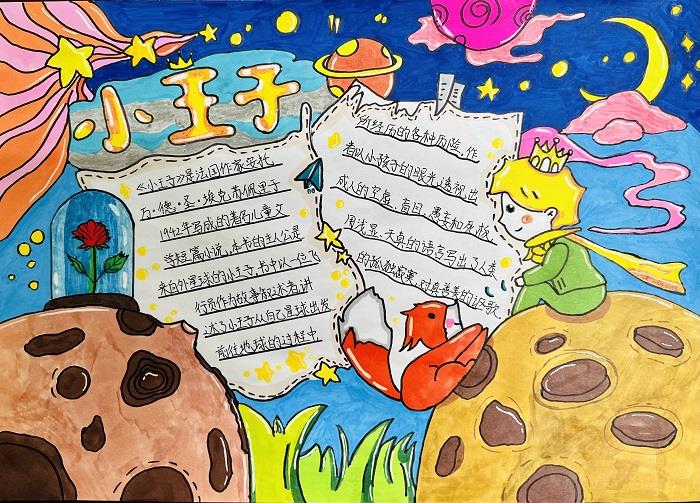 小王子
《小王子》是法国作家安托
万·德·圣·埃克苏佩里于
1942年写成的著名儿童文
学短篇小说。本书的主人公是
来自外星球的小王子。书中以一位飞
行员作为故事叙述者讲
述了小王子从自己星球出发
前往地球的过程中
所经历的各种历险。作
者以小孩子的眼光,透视出
成人的空虚、盲目、愚妄和死板
用浅显、天真的语言写出了人类
的孤独寂寞,对真善美的讴歌